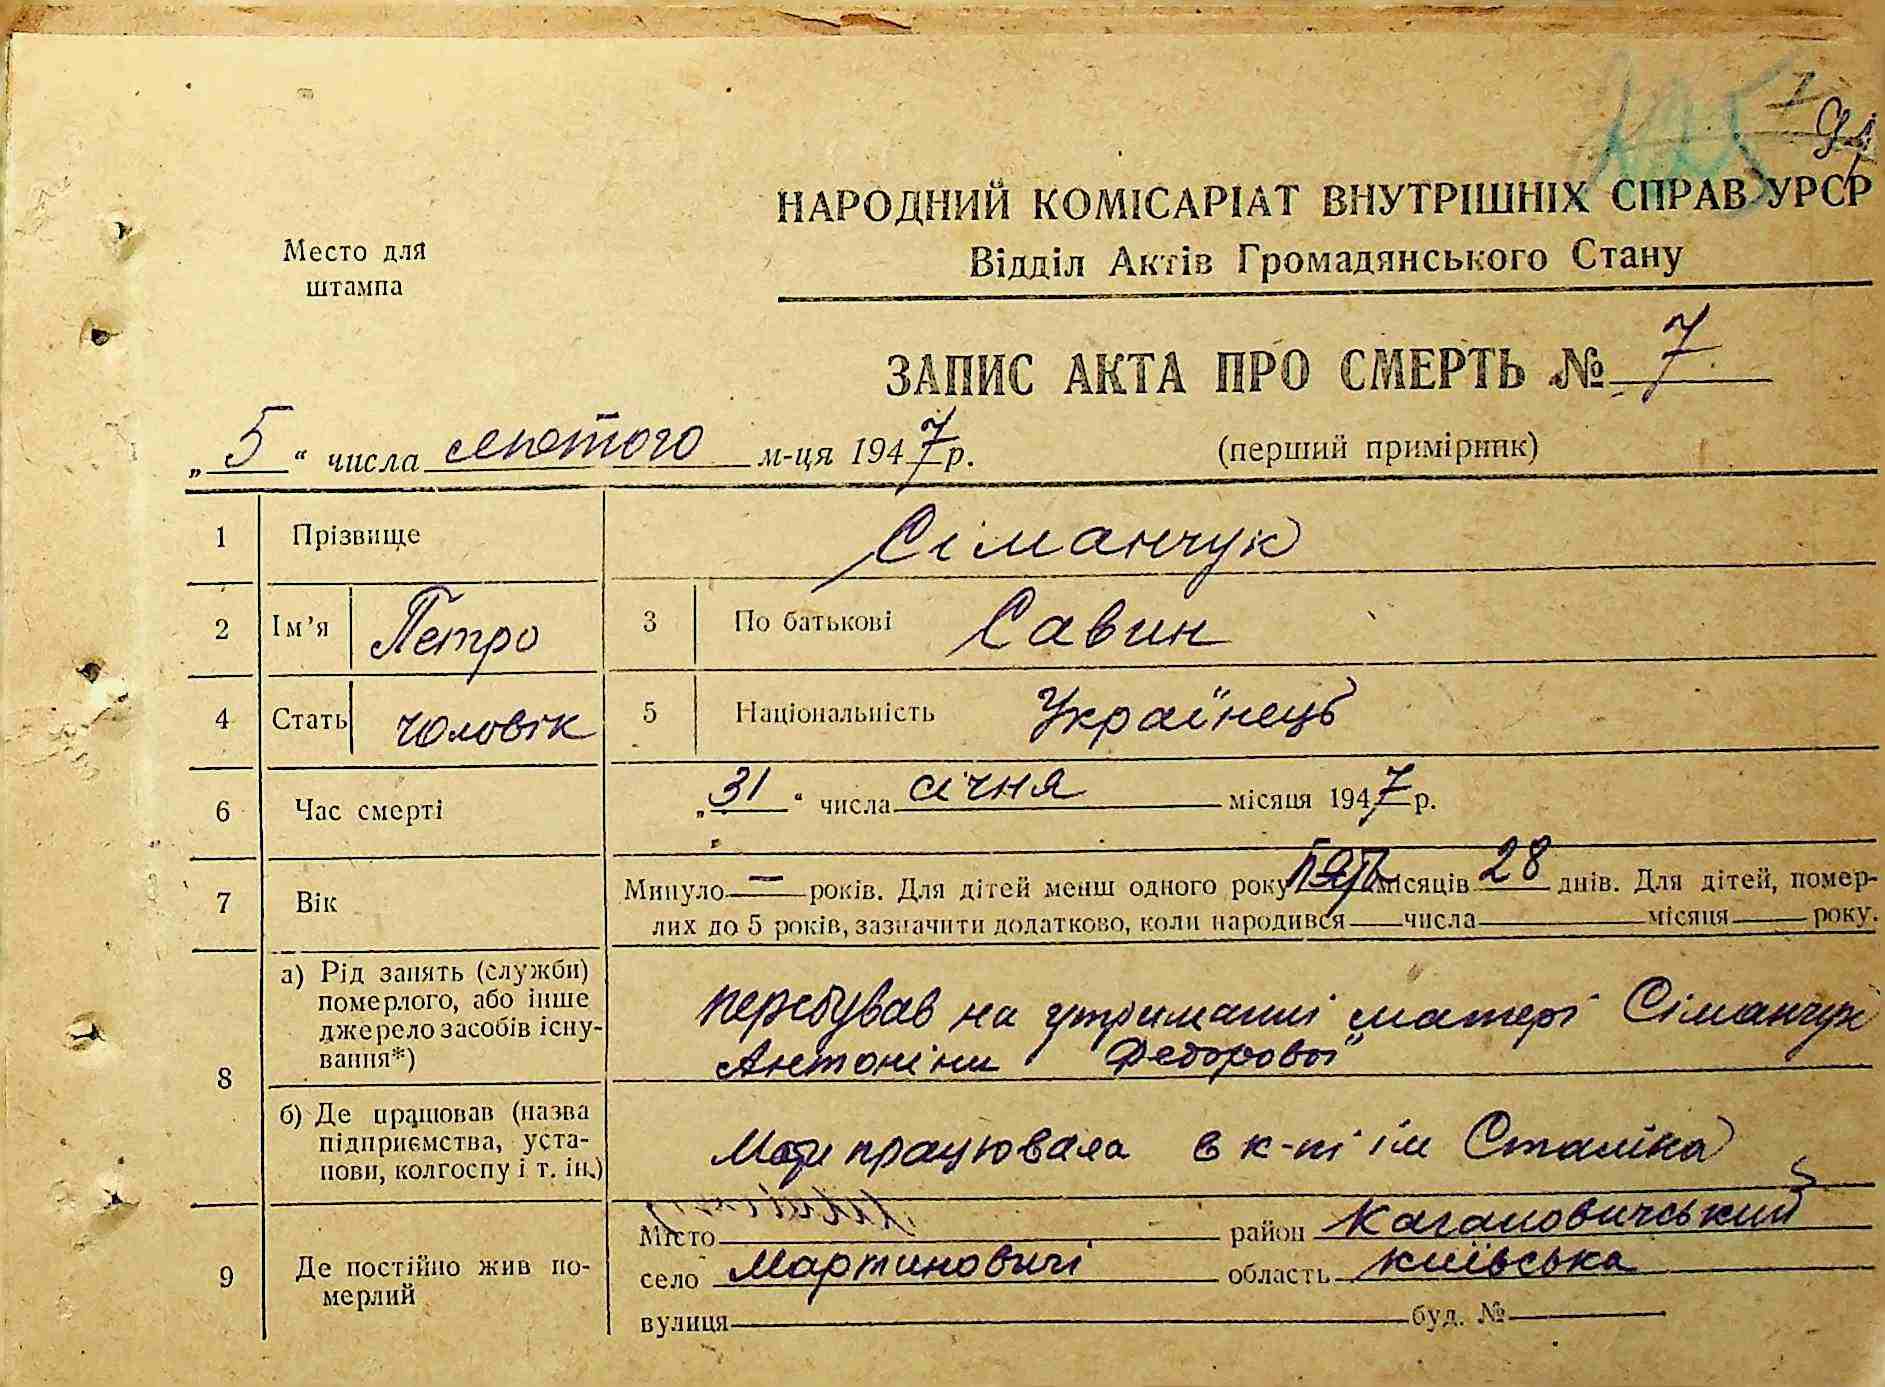 7
94
НАРОДНИЙ КОМІСАРІАТ ВНУТРІШНІХ СПРАВ УРСР
Место для
штампа
Відділ Актів Громадянського Стану
ЗАПИС АКТА ПРО СМЕРТЬ № 7
„5“ числа лютого м-ця 1947 р.
(перший примірник)
1 Прізвище Сіманчук
2 Ім’я Петро 3 По батькові Савин
4 Стать чоловік 5 Національність Українець
6 Час смерті „31“ числа січня місяця 1947 р.
7 Вік Минуло — років. Для дітей менш одного року місяців 28 днів. Для дітей, помер-
лих до 5 років, зазначити додатково, коли народився числа місяця року.
8 а) Рід занять (служби)
померлого, або інше
джерело засобів існу-
вання*)
перебував на утриманні матері Сіманчук
Антоніни Федорової
б) Де працював (назва
підприємства, уста-
нови, колгоспу і т. ін.)
Мати працювала в к-пі ім Сталіна
9 Де постійно жив по-
мерлий
Місто район Кагановичський
село Мартиновичі область київська
вулиця буд. №